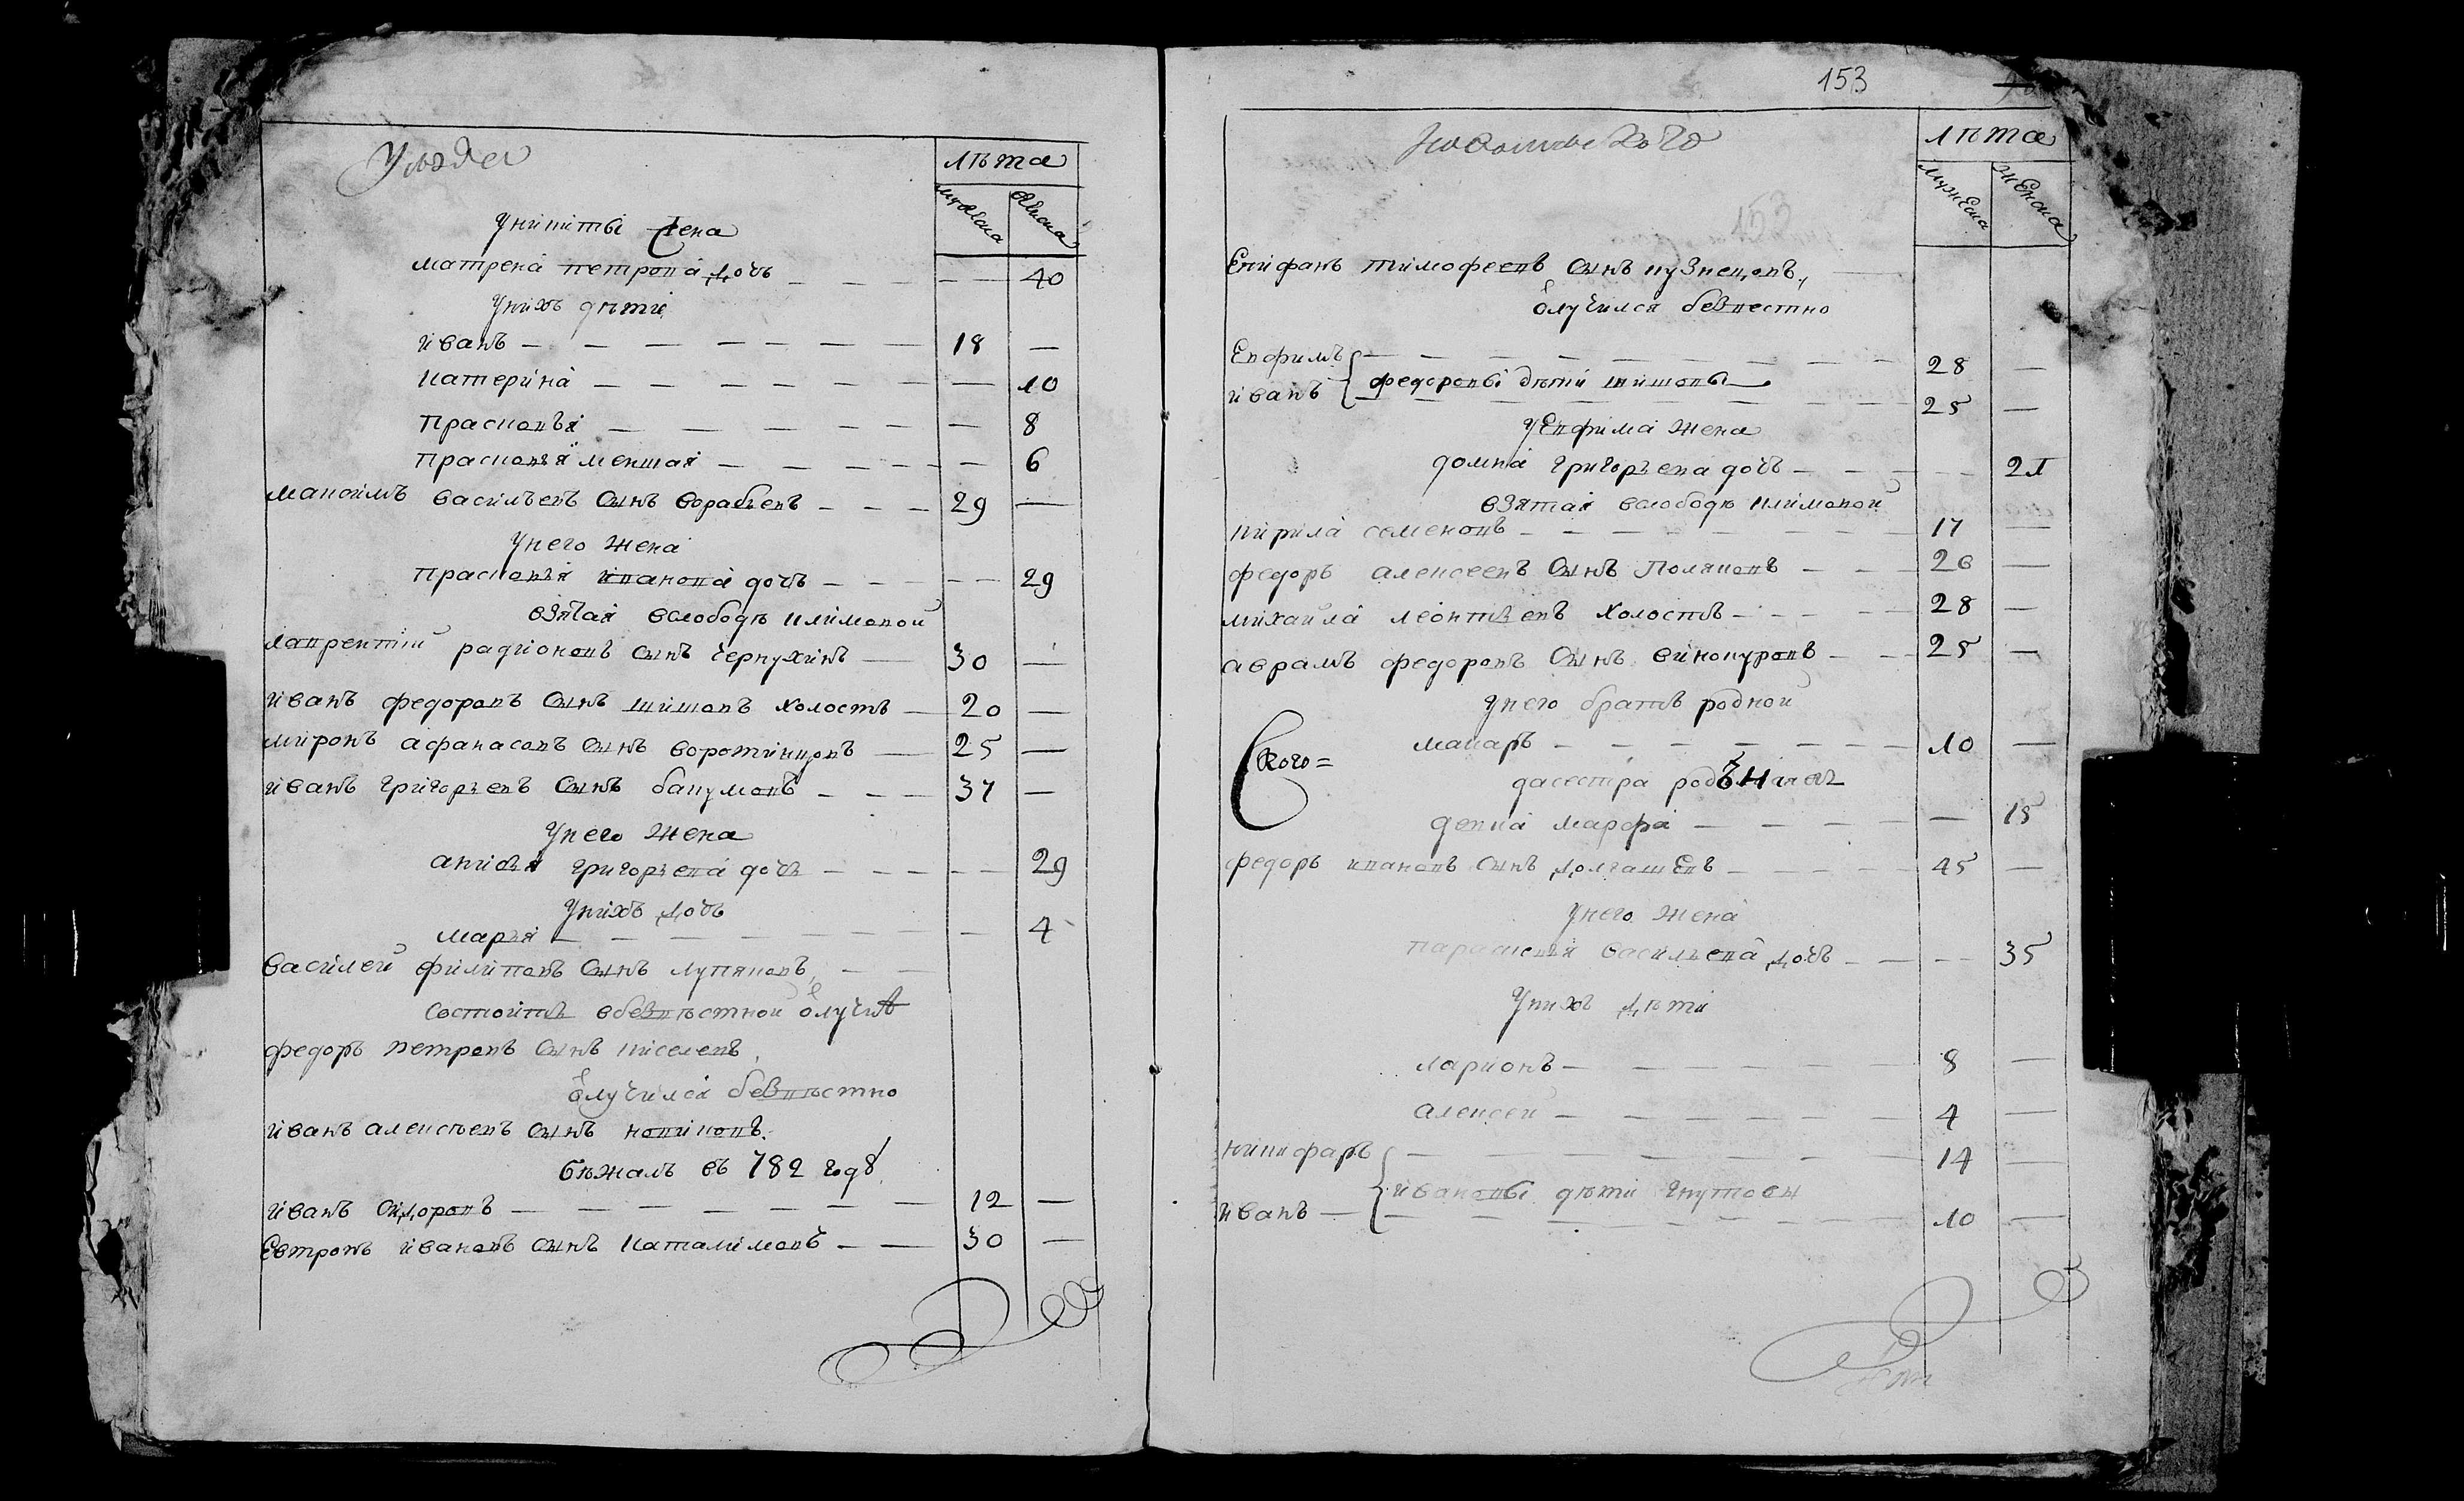 Уезда
лѣта
мужеска
женска
Уникиты жена
матрена петрова дочь — — — — — 40
Унихъ дѣти
иванъ — — — — — — — 18 —
катерина — — — — — — — 10
прасковья — — — — — — — 8
прасковья меншая — — — — — — 6
мапоилъ васильевъ сынъ воробьевъ — — — 29 —
Унего жена
прасковья иванова дочь — — — — 29
взятая вслободѣ климовой
лаврентий радионовъ сынъ чернухинъ — 30 —
иванъ федоровъ сынъ шишовъ холостъ — 20 —
миронъ афанасовъ сынъ воротинцовъ — 25 —
иванъ григорьевъ сынъ бакумовъ — — — 37 —
Унего жена
анисья григорьева дочь — — — — — 29
Унихъ дочь
марья — — — — — — — — 4
василей филиповъ сынъ лупяновъ — —
состоитъ вбезвѣстной отлучкѣ
федоръ петровъ сынъ киселевъ
отлучился безвѣстно
иванъ алексѣевъ сынъ новиковъ
бѣжалъ въ 782 году
иванъ сидоровъ — — — — — — — 12 —
Евтропъ ивановъ сынъ каталимовъ — — 30 —
153
лѣта
мужеска
женска
Епифанъ тимофеевъ сынъ кузнецовъ —
отлучился безвестно
Епфимъ — — — — — — — — 28 —
федоровы дѣти шишовы
иванъ — — — — — — — — 25 —
уЕпфима жена
домна григорьева дочь — — — — 21
взятая вслободѣ климовой
кирила семеновъ — — — — — — — 17 —
федоръ алексеевъ сынъ поляковъ — — — 26 —
михайла леонтьевъ холостъ — — — — — 28 —
аврамъ федоровъ сынъ винокуровъ — — 25 —
унего братъ родной
макаръ — — — — — — — 10 —
Ского=
дасестра родъная
девка марфа — — — — — 15
федоръ ивановъ сынъ долгашевъ — — — — — 45 —
Унего жена
парасковья васильева дочь — — — — 35
Унихъ дѣти
ларионъ — — — — — — 8 —
алексей — — — — — — 4 —
никифаръ — — — — — — — — 14 —
ивановы дѣти кнутовы
иванъ — — — — — — — — 10 —